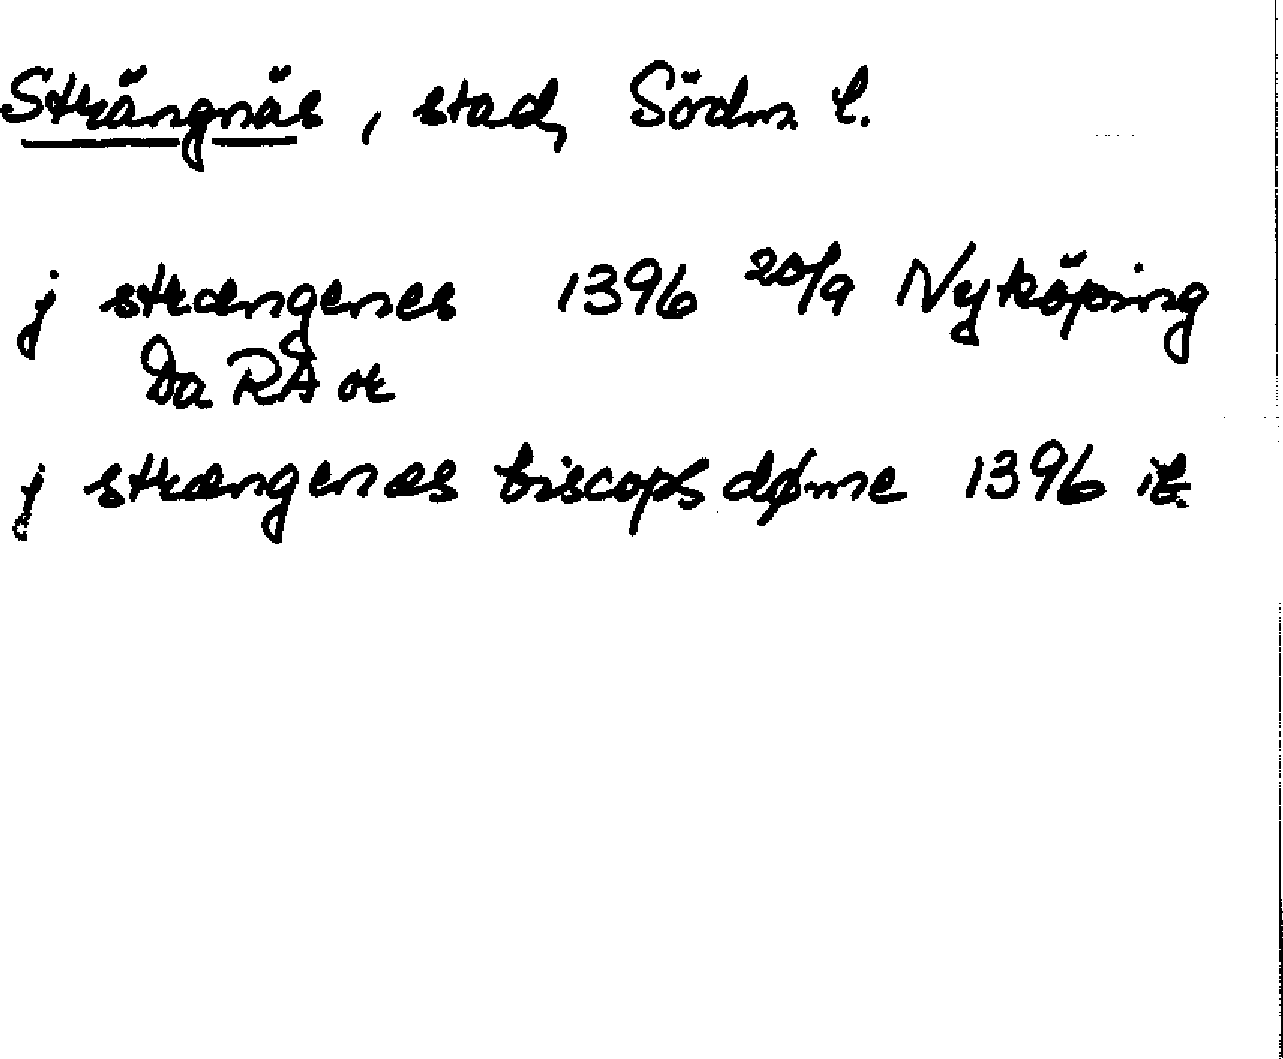 Strängnäs, stad, Södm. l.
j strængenes 1396 20/9 Nyköping
Da RA or
j strængenæs biscops døme 1396 ib.